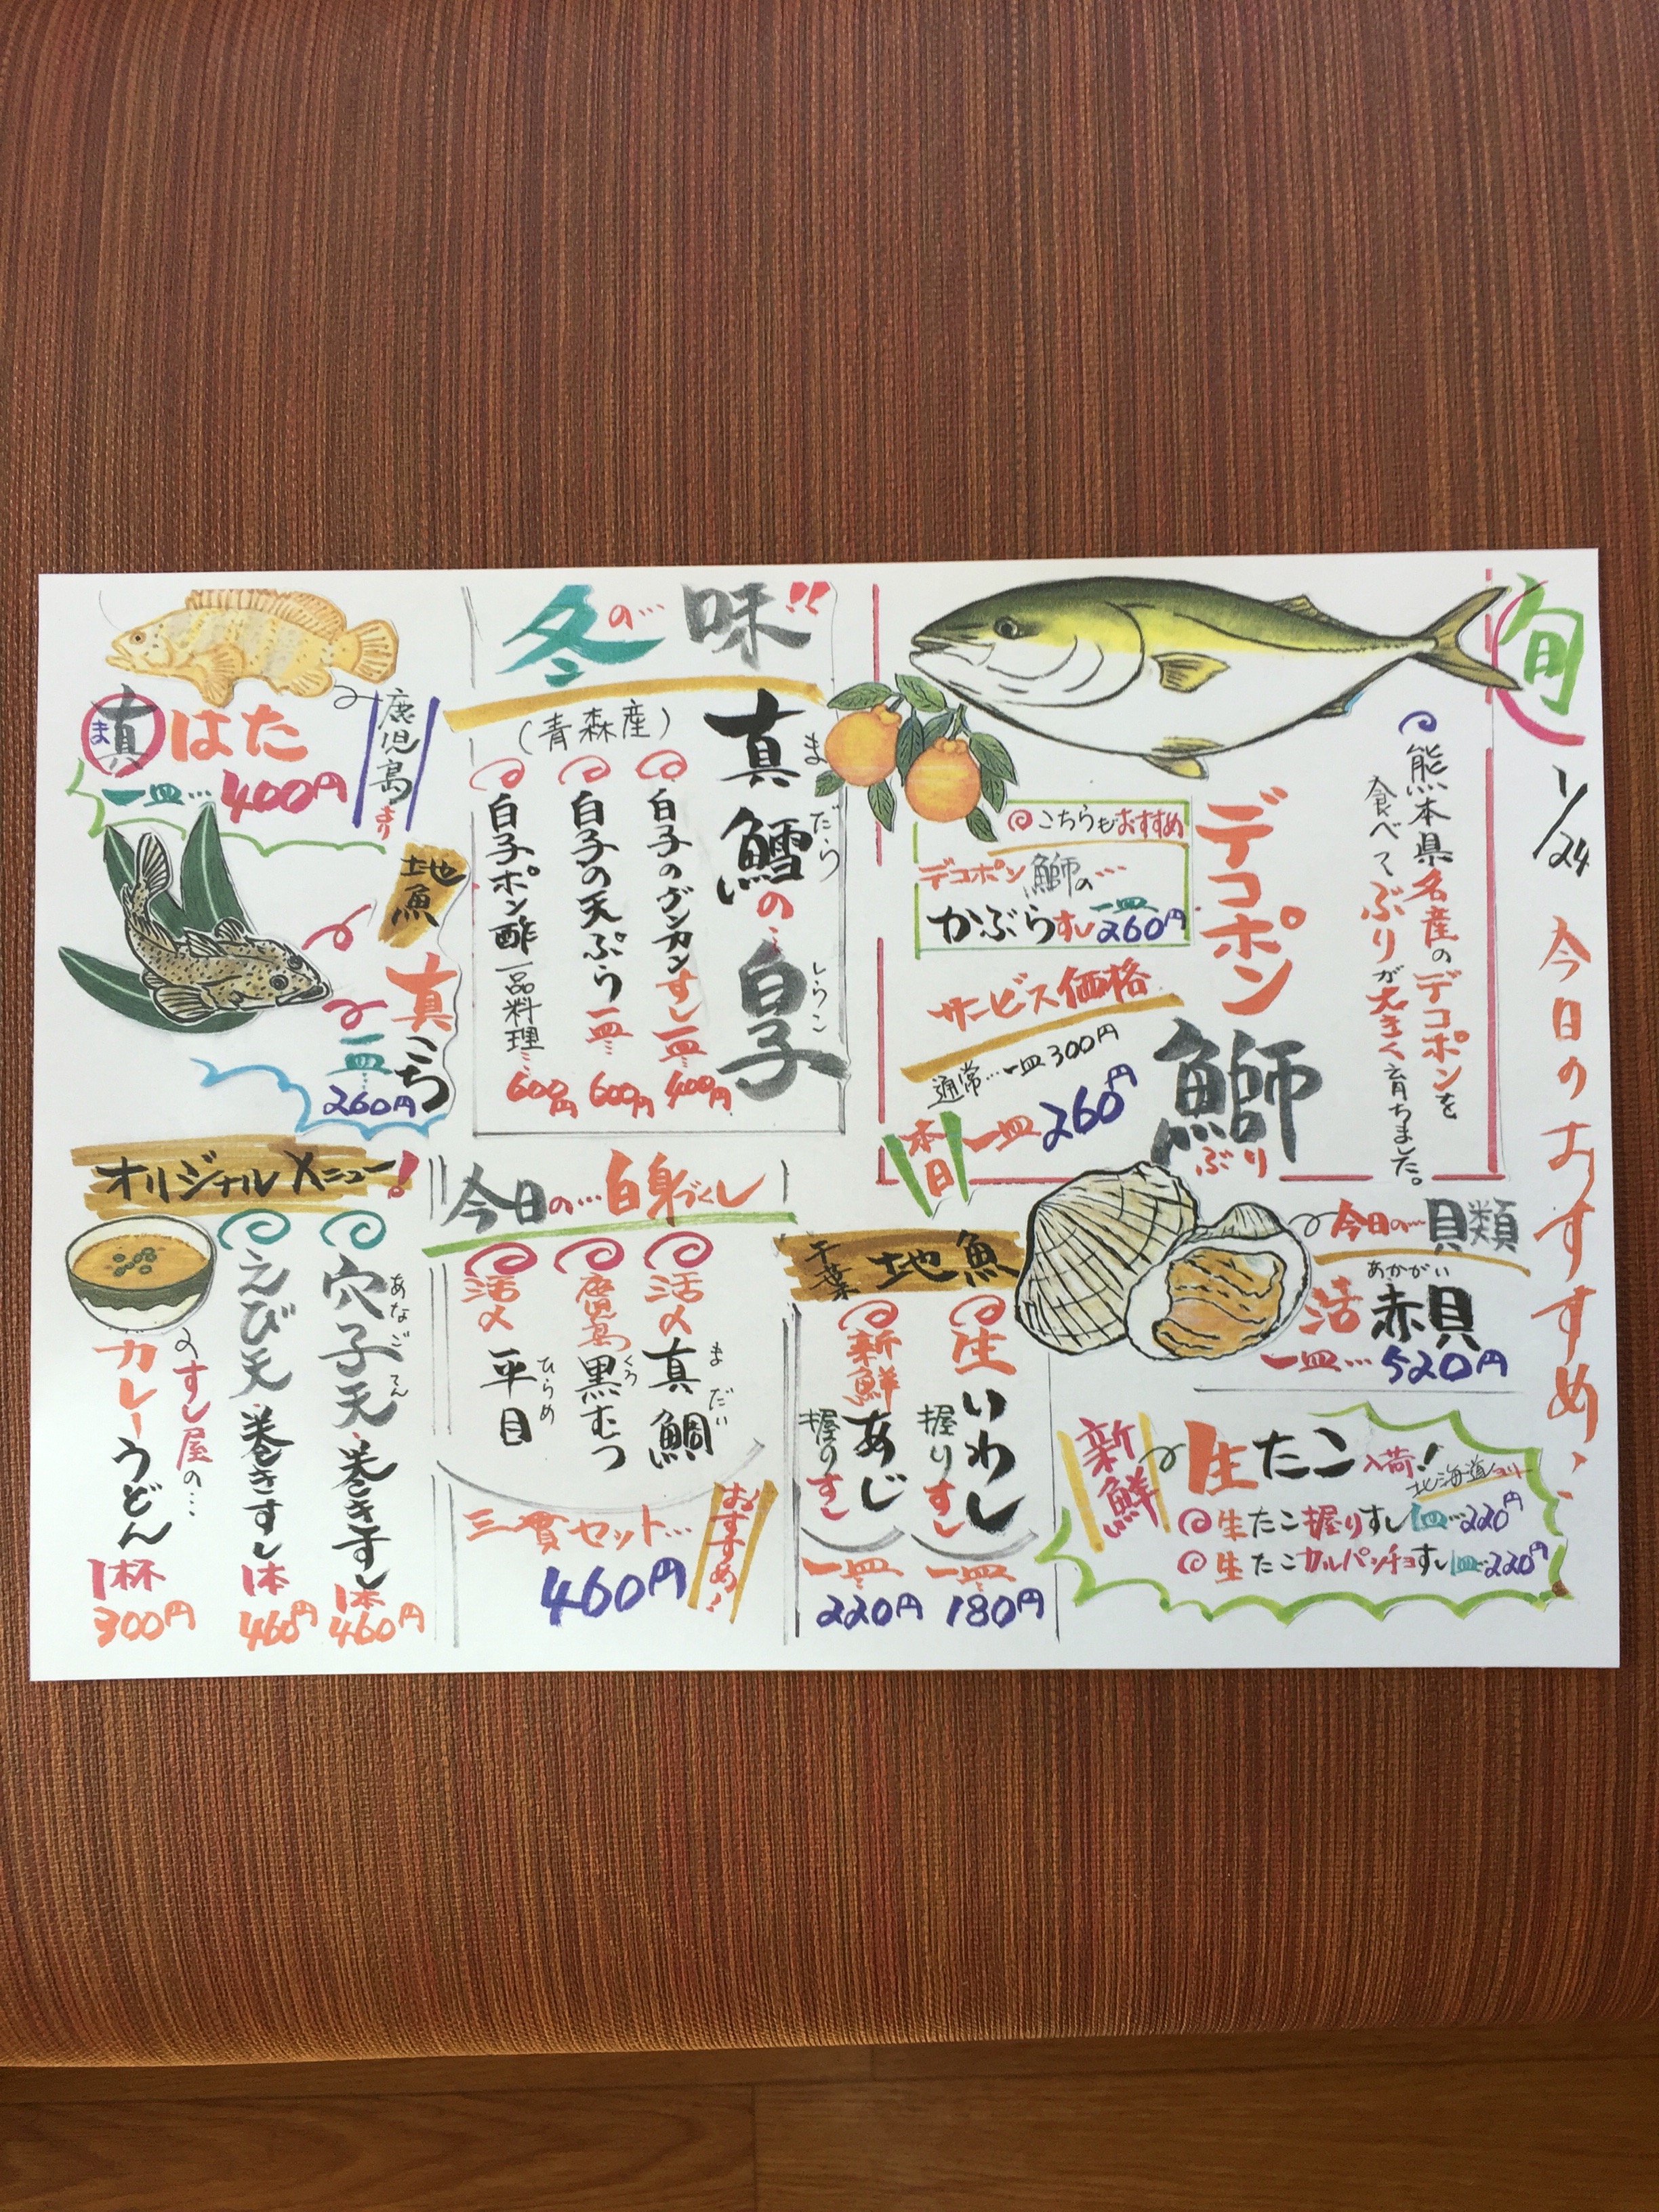 旬
1/24
今日のおすすめ、、
熊本県名産のデコポンを
食べてぶりが大きく育ちました。
デコポン
鰤
ぶり
こちらもおすすめ
デコポン鰤の…
かぶらすし一皿260円
サービス価格
通常…一皿300円
本日一皿260円
今日の…貝類
あかがい
活赤貝
一皿…520円
新鮮
生たこ入荷!
北海道より
生たこ握りすし一皿…220円
生たこカルパッチョすし一皿…220円
冬の…味!!
真鱈の…白子
まだら
しらこ
(青森産)
白子のグンカンすし一皿…400円
白子の天ぷら一皿…600円
白子ポン酢一品料理…600円
真はた
ま
鹿児島より
一皿…400円
地魚
真こち
一皿…
260円
千葉地魚
生いわし
握りすし
一皿…
180円
新鮮あじ
握りすし
一皿…
220円
今日の…白身づくし
活〆真鯛
まだい
鹿児島黒むつ
くろ
活〆平目
ひらめ
三貫セット…
460円
おすすめ!
オリジナルメニュー!
穴子天巻きすし
あなごてん
1本
460円
えび天巻きすし
1本
460円
すし屋の…
カレーうどん
1杯
300円